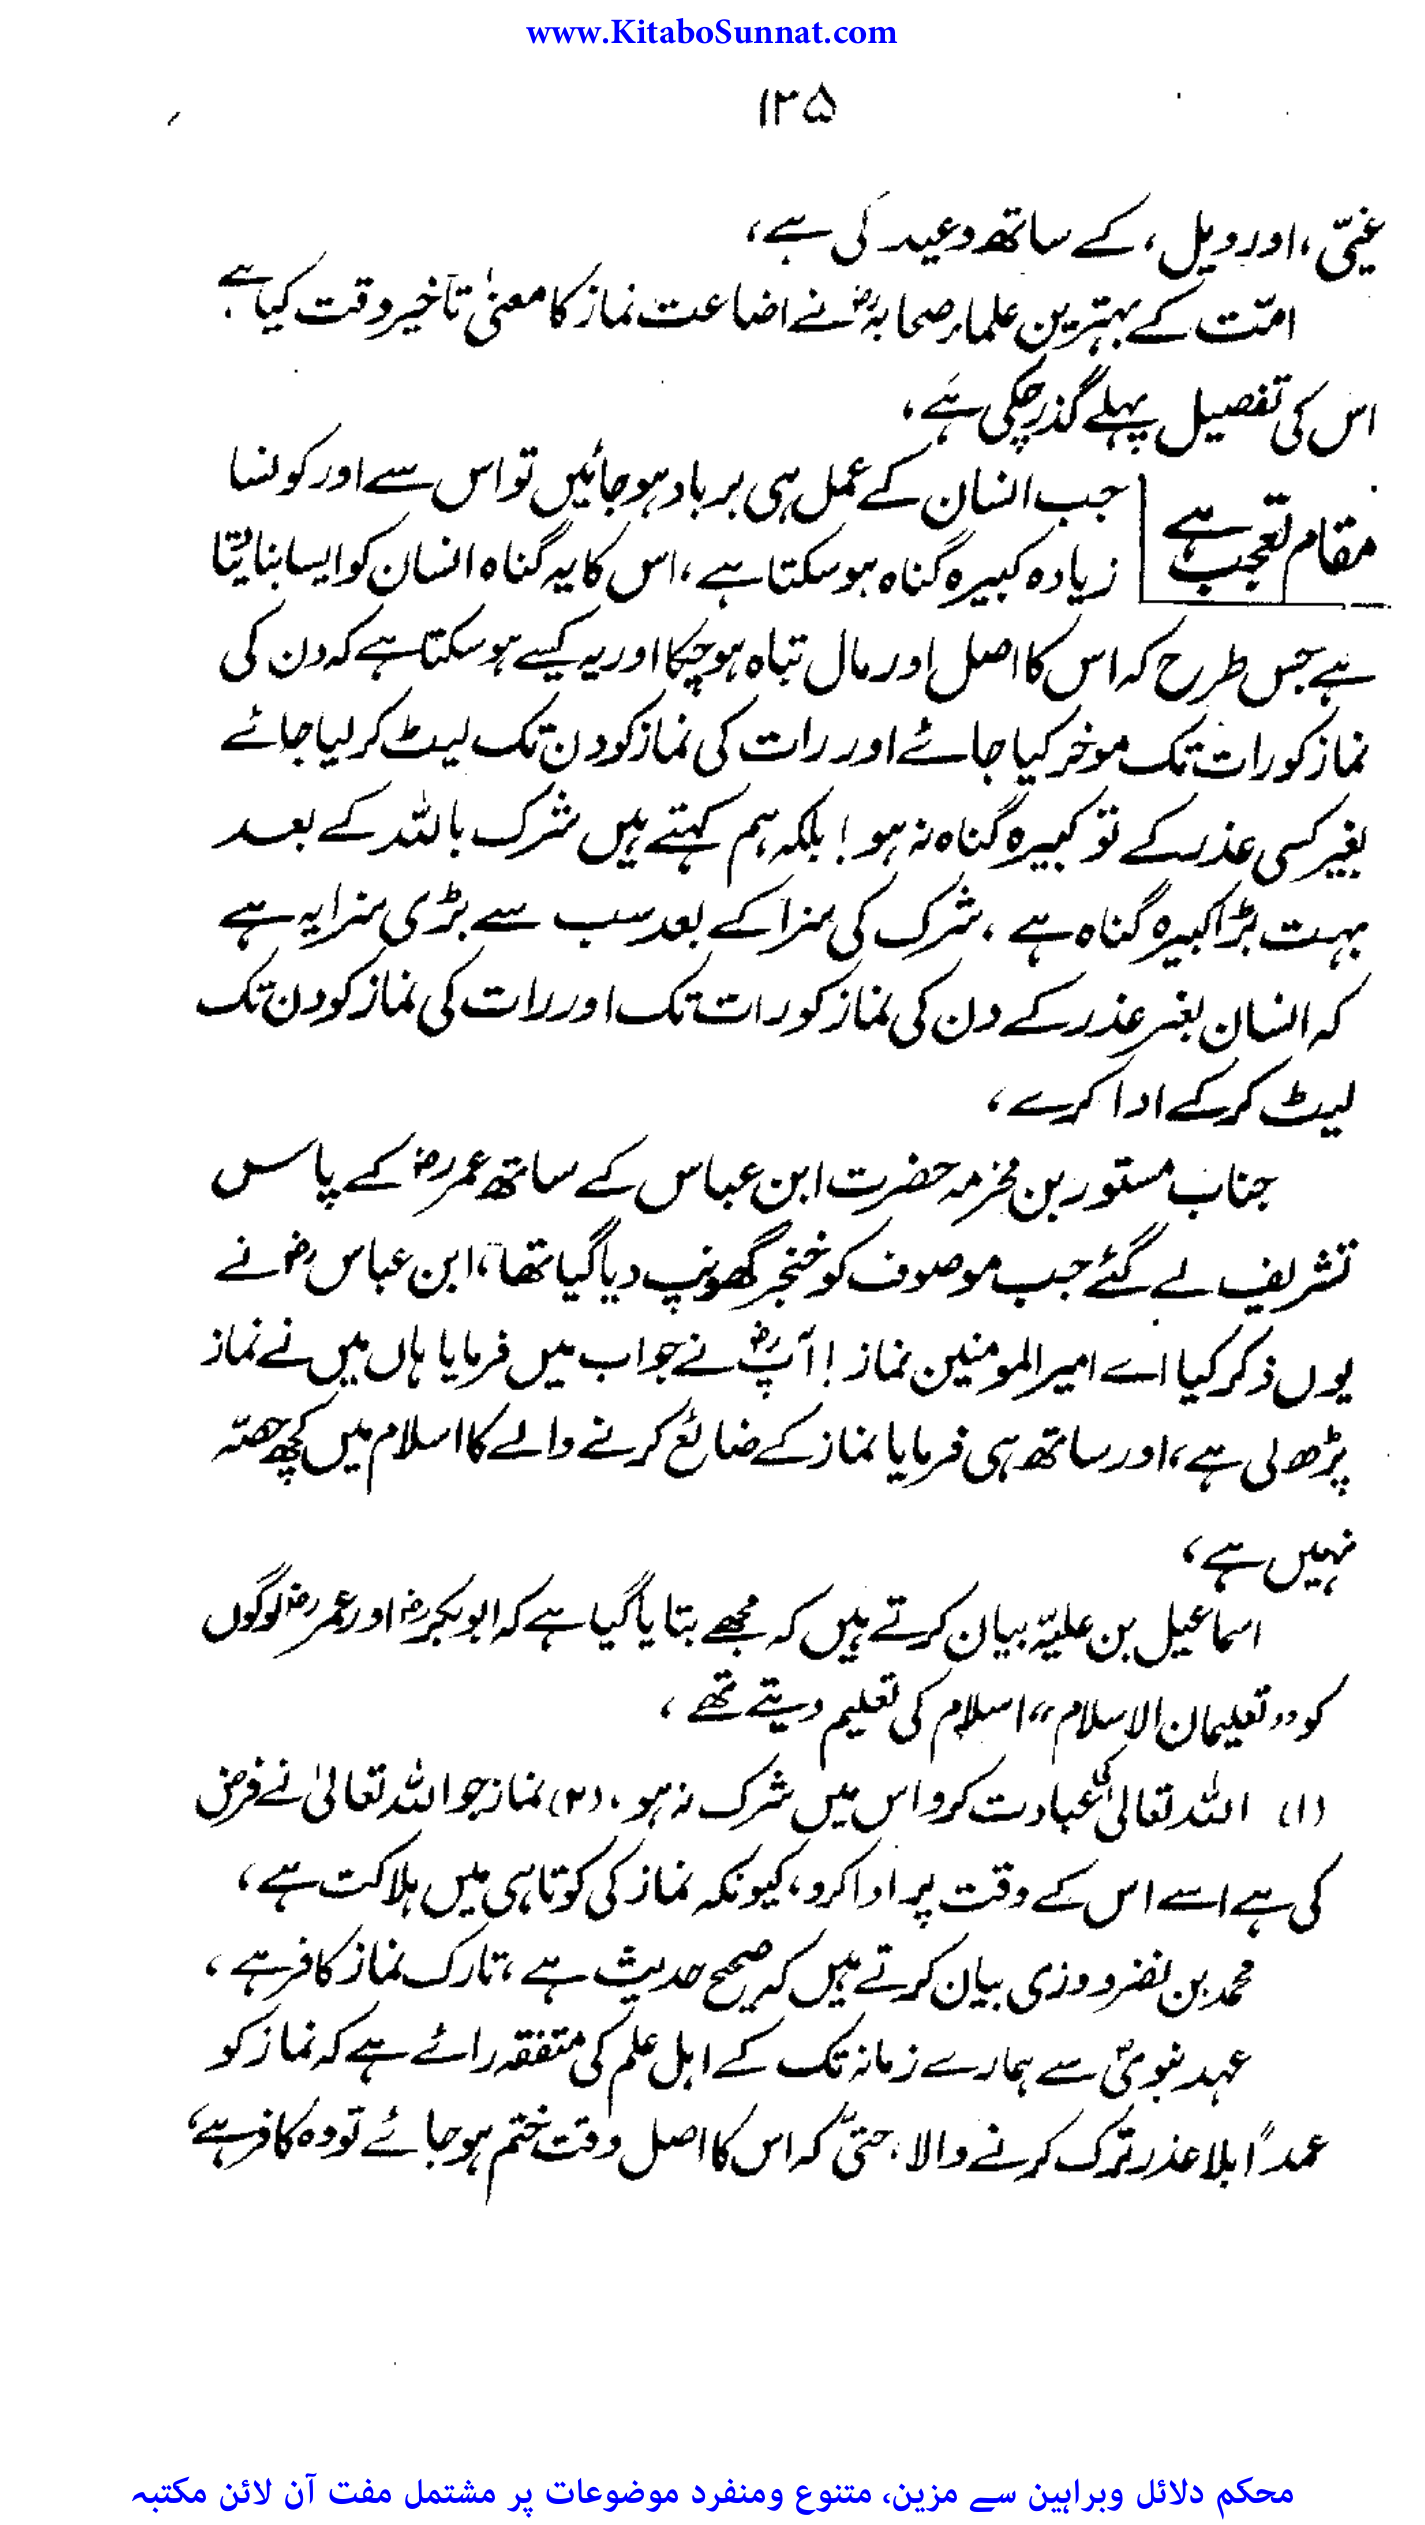 www.KitaboSunnat.com
۱۲۵
غیّ، اور ویل، کے ساتھ وعید کی ہے،
امّت کے بہترین علماء صحابہؓ نے اضاعت نماز کا معنیٰ تاخیر وقت کیا ہے
اس کی تفصیل پہلے گذر چکی ہے،
مقام تعجب ہے
جب انسان کے عمل ہی برباد ہو جائیں تو اس سے اور کونسا
زیادہ کبیرہ گناہ ہو سکتا ہے، اس کا یہ گناہ انسان کو ایسا بنا دیتا
ہے جس طرح کہ اس کا اصل اور مال تباہ ہو چکا اور یہ کیسے ہو سکتا ہے کہ دن کی
نماز کو رات تک موخر کیا جائے اور رات کی نماز کو دن تک لیٹ کر لیا جائے
بغیر کسی عذر کے تو کبیرہ گناہ نہ ہو! بلکہ ہم کہتے ہیں شرک باللہ کے بعد
بہت بڑا کبیرہ گناہ ہے، شرک کی سزا کے بعد سب سے بڑی سزا یہ ہے
کہ انسان بغیر عذر کے دن کی نماز کو رات تک اور رات کی نماز کو دن تک
لیٹ کر کے ادا کرے،
جناب مستور بن مخرمہ حضرت ابن عباس کے ساتھ عمرؓ کے پاس
تشریف لے گئے جب موصوف کو خنجر گھونپ دیا گیا تھا، ابن عباسؓ نے
یوں ذکر کیا اے امیر المومنین نماز! آپؓ نے جواب میں فرمایا ہاں میں نے نماز
پڑھ لی ہے، اور ساتھ ہی فرمایا نماز کے ضائع کرنے والے کا اسلام میں کچھ حصّہ
نہیں ہے،
اسماعیل بن علیّہ بیان کرتے ہیں کہ مجھے بتایا گیا ہے کہ ابوبکرؓ اور عمرؓ لوگوں
کو ”تعلیمان الاسلام“ اسلام کی تعلیم دیتے تھے،
(۱) اللہ تعالیٰ کی عبادت کرو اس میں شرک نہ ہو، (۲) نماز جو اللہ تعالیٰ نے فرض
کی ہے اسے اس کے وقت پر ادا کرو، کیونکہ نماز کی کوتاہی میں ہلاکت ہے،
محمد بن نضر وروزی بیان کرتے ہیں کہ صحیح حدیث ہے، تارک نماز کافر ہے،
عہد نبویؐ سے ہمارے زمانہ تک کے اہل علم کی متفقہ رائے ہے کہ نماز کو
عمداً بلا عذر ترک کرنے والا، حتیّٰ کہ اس کا اصل وقت ختم ہو جائے تو وہ کافر ہے،
محکم دلائل وبراہین سے مزین، متنوع ومنفرد موضوعات پر مشتمل مفت آن لائن مکتبہ